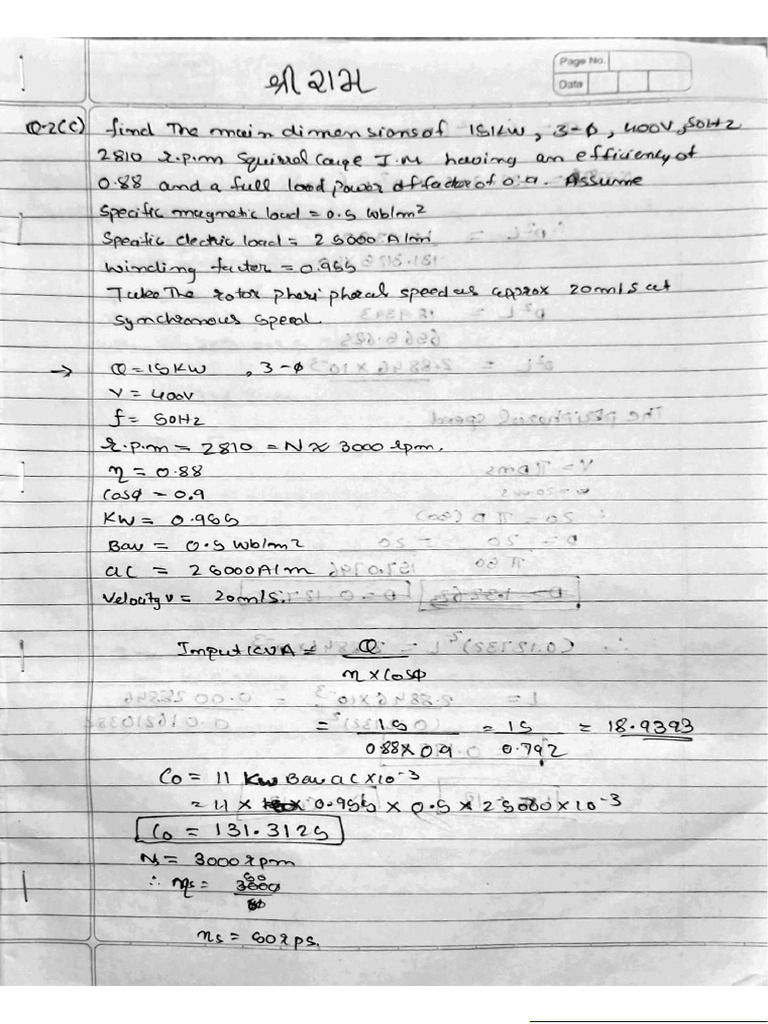 श्री રામ
Page No.
Date
Q-2(C) find The main dimensions of 15KW, 3-ϕ, 400V, 50HZ
2810 r.p.m Squirral Cauge I.M having an efficiency of
0.88 and a full load power of factor of 0.9. Assume
Specific magnetic load = 0.5 wb/m2
Speafic electric load = 25000 A/m
winding factor = 0.955
Take The rotor phori pharal speed as approx 20m/s at
synchronous speed.
→ Q = 15 KW , 3-ϕ
V = 400V
f = 50HZ
r.p.m = 2810 = N ≈ 3000 rpm.
η = 0.88
Cosϕ = 0.9
KW = 0.955
Bav = 0.5 Wb/m2
ac = 25000A/m
Velocity v = 20m/s.
Imput KVA = Q
η x Cosϕ
= 15 = 15 = 18.9393
0.88 x 0.9 0.792
Co = 11 Kw Bav ac x 10-3
= 11 x 0.955 x 0.5 x 25000 x 10-3
Co = 131.3125
Ns = 3000 rpm
∴ ns = 3000
60
ns = 50 rps.